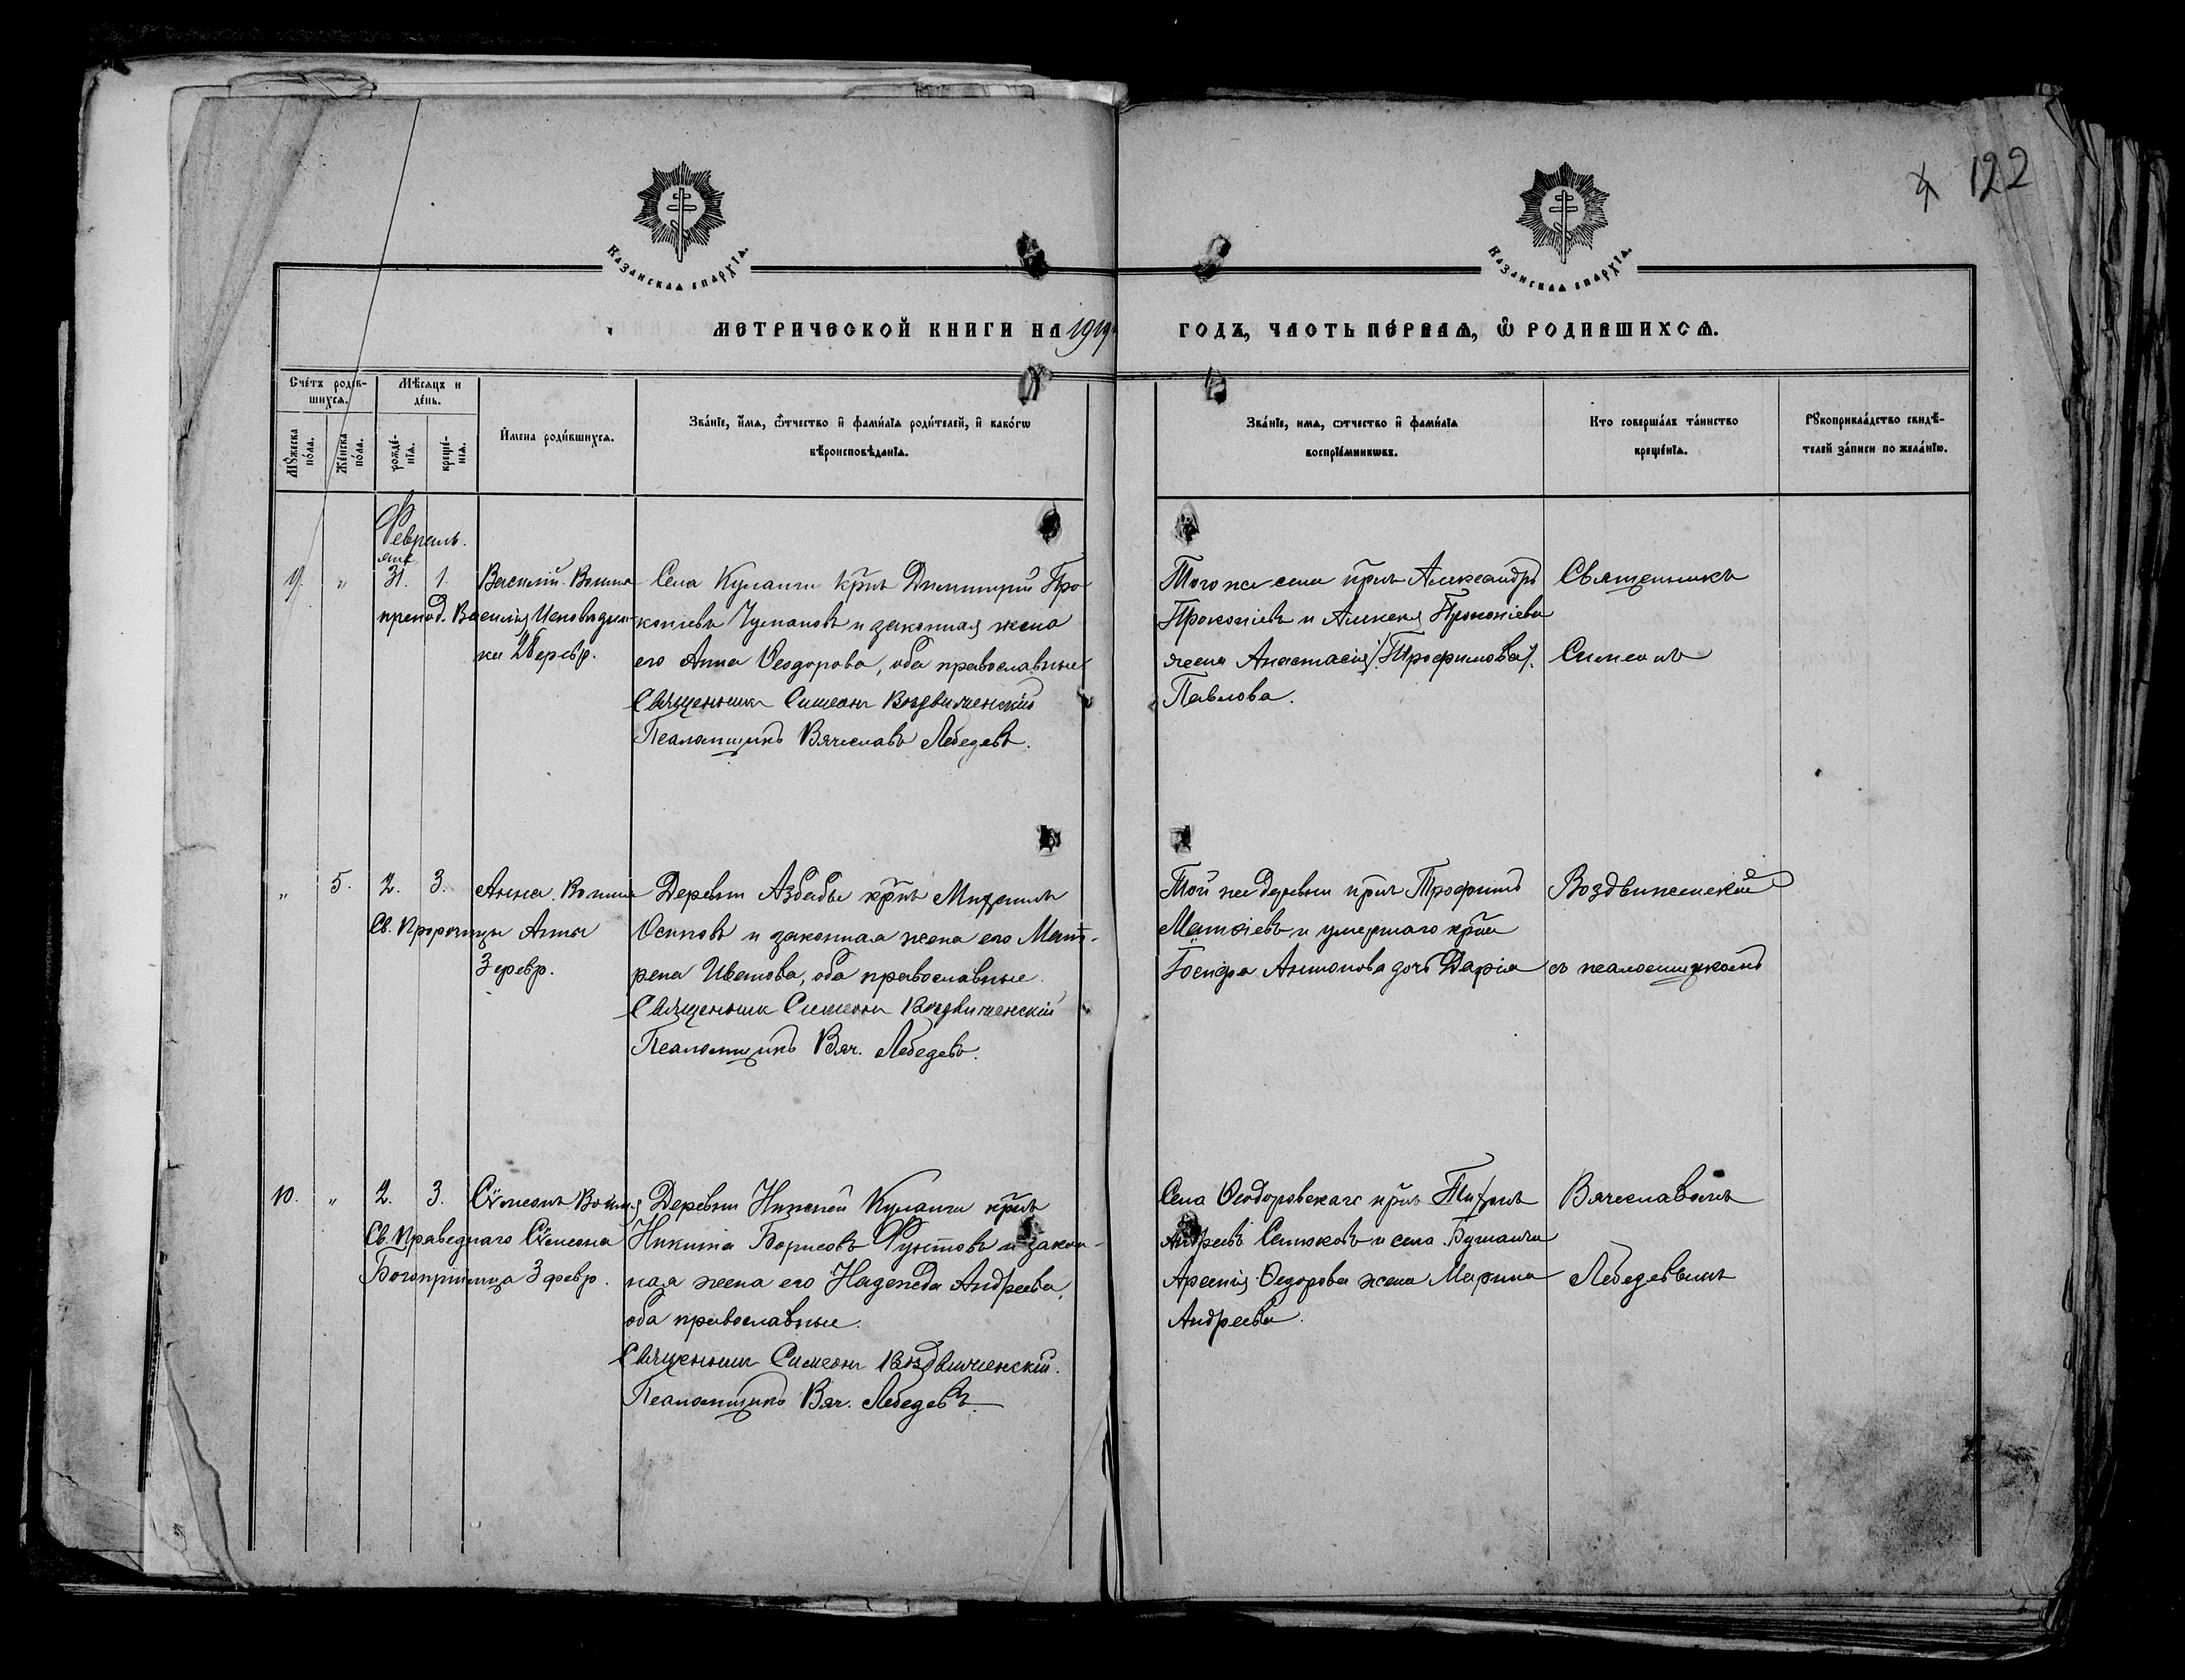 122
Казанскаѧ єпархїѧ.
Казанскаѧ єпархїѧ.
МЕТРИЧЕСКОЙ КНИГИ НА 1919
ГОДЪ, ЧАСТЬ ПЕ́РВАѦ, Ѿ РОДИВШИХСѦ.
Сче́тъ роди́в-
шихсѧ.
Мѣ́сѧцъ и
де́нь.
Мꙋ́жеска
по́ла.
Же́нска
по́ла.
рожде́-
нїѧ.
креще́-
нїѧ.
И҆мена роди́вшихсѧ.
Зва́нїе, и҆́мѧ, ѻ҆́тчество и҆ фами́лїѧ роди́телей, и҆ како́гѡ
вѣроисповѣ́данїѧ.
Зва́нїе, имѧ, ѻтчество и҆ фами́лїѧ
воспрїе́мникѡвъ.
Кто соверша́лъ та́инство
креще́нїѧ.
Рꙋкоприкла́дство свидѣ́-
телей за́писи по жела́нїю.
Февраль.
янв.
9. " 31. 1. Василій. Во имя
препод. Василія Исповѣдни-
ка 28 февр.
Села Куланги крн͠ъ Димитрій Про-
копіевъ Чумаковъ и законная жена
его Анна Ѳеодорова, оба православные
Священникъ Симеонъ Воздвиженскій
Псаломщикъ Вячеславъ Лебедевъ.
Того же села крн͠ъ Александръ
Прокопіевъ и Алексея Прокопіева
жена Анастасія /Трофимова/.
Павлова.
Священникъ
Симеонъ
" 5. 2. 3. Анна. Во имя
Св. Пророчицы Анны
3 февр.
Деревни Азбабы крн͠ъ Михаилъ
Осиповъ и законная жена его Мат-
рена Ивано­ва, оба православные.
Священникъ Симеонъ Воздвиженскій
Псаломщикъ Вяч. Лебедевъ.
Той же деревни крн͠ъ Трофимъ
Матѳіевъ и умершаго крн͠а
Іосифа Антонова дочь Дарія
Воздвиженскій
съ псаломщикомъ
10. " 2. 3. Сѵмеонъ Во имя
Св. Праведнаго Сѵмеона
Богопріимца 3 февр.
Деревни Нижней Куланги крн͠ъ
Никита Борисовъ Фунтовъ и закон-
ная жена его Надежда Андреева,
оба православные.
Священникъ Симеонъ Воздвиженскій.
Псаломщикъ Вяч. Лебедевъ.
Села Ѳеодоровскаго крн͠ъ
Андреевъ и села
Арсенія Ѳедорова жена Марина
Андреева.
Вячеславомъ
Лебедевымъ